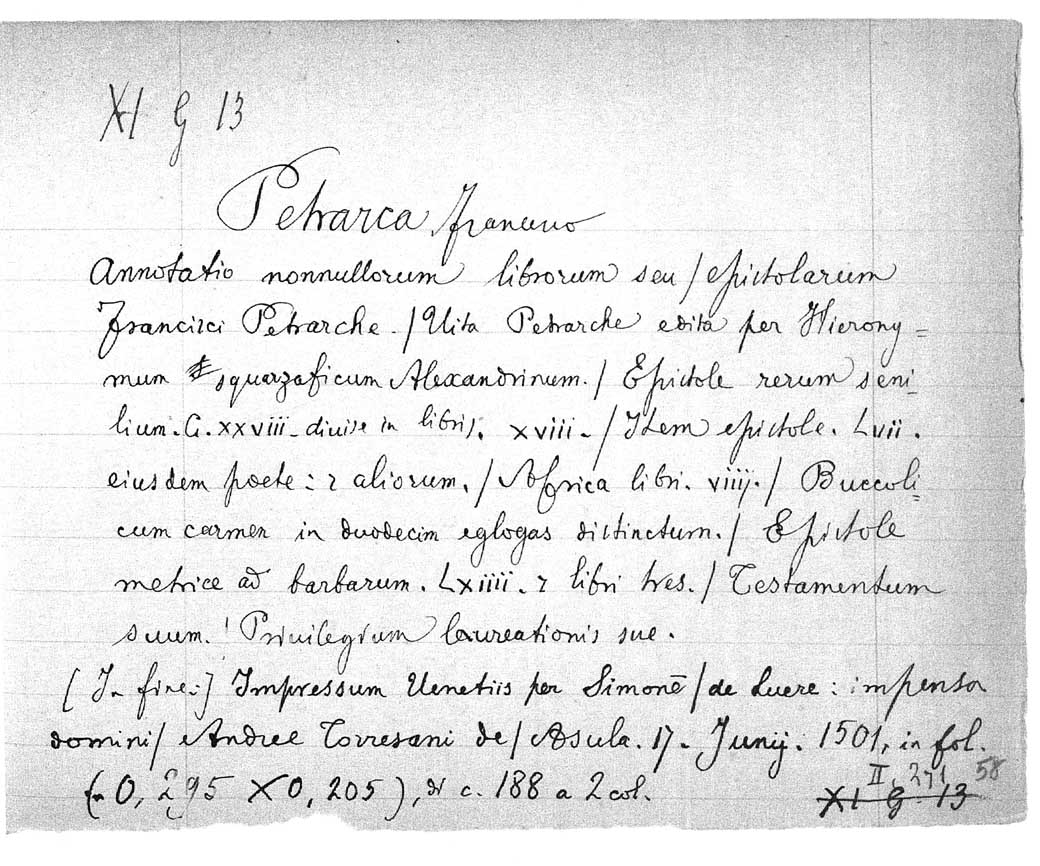 XI G 13
Petrarca, Francesco
Annotatio nonnullorum librorum seu / epistolarum
Francisci Petrarche. / Uita Petrarche edita per Hierony=
mum squarzaficum Alexandrinum. / Epistole rerum seni=
lium. C. xxviii - diuise in libris. xviii - / Item epistole. Lvii.
eiusdem poete: ⁊ aliorum. / Africa libri. viiij. / Buccoli=
cum carmen in duodecim eglogas distinctum. / Epistole
metrice ad barbarum. Lxiiii. ⁊ libri tres. / Testamentum
suum. / Priuilegium laureationis sue.
[In fine:] Impressum Uenetiis per Simonē / de Luere: impensa
domini / Andree Torresani de / Asula. 17. Junij. 1501, in fol.
(m 0,295 X 0,205), di c. 188 a 2 col.
II, 271 58
XI G 13